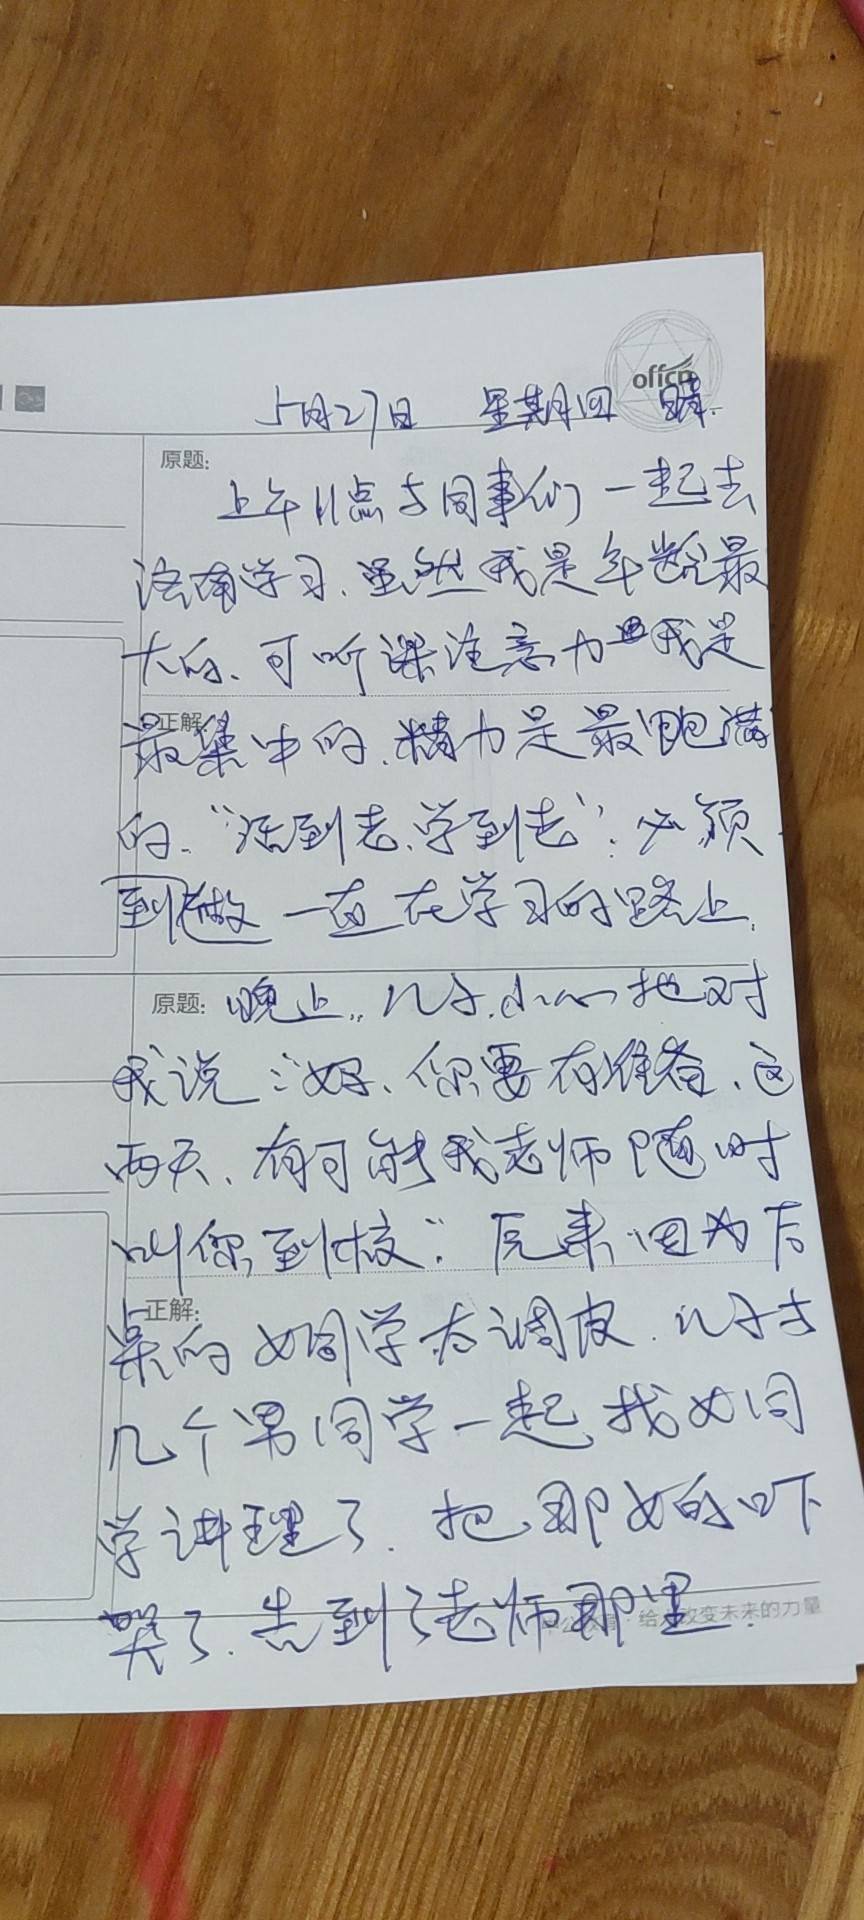 offcn
5月27日 星期四 晴.
原题:
上午11点与同事们一起去
济南学习、虽然我是年龄最
大的、可听课注意力我是
正解:
最集中的、精力是最饱满
的、“活到老、学到老”. 必须
到做一直在学习的路上.
原题:
晚上,, 儿子,小心地对
我说:“妈、你要有准备、这
两天、有可能我老师随时
叫你到校”. 原来因为后
正解:
桌的女同学太调皮. 儿子与
几个男同学一起找女同
学讲理了. 把那女的吓
哭了. 告到了老师那里.
给人改变未来的力量